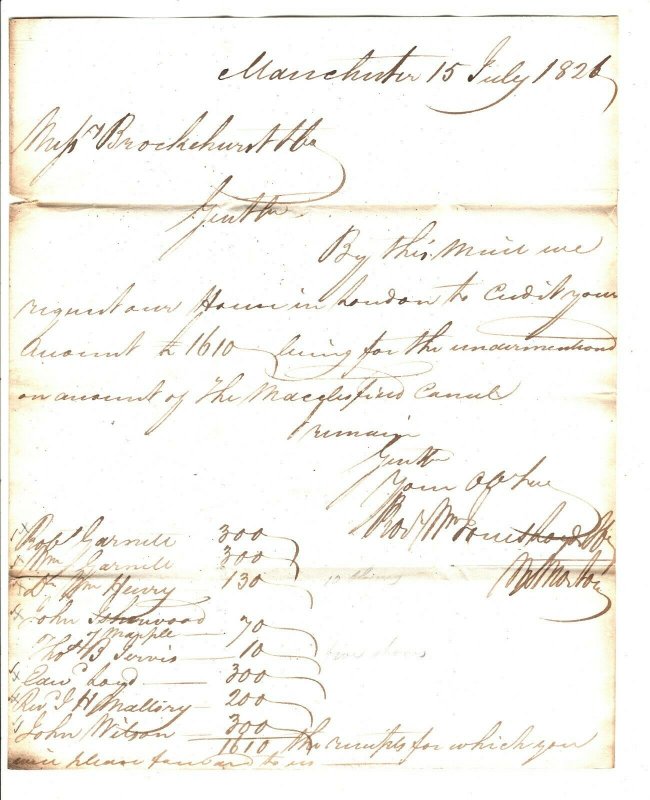 Manchester 15 July 1826
Messrs Brocklehurst & Co
Gentln
By this Mail we
request our House in London to Credit your
Account £ 1610 being for the undermentiond
on account of the Macclesfield Canal
remain
Gentln
Your
Wm Jones Loyd & Co
Robt Garnett 300
Wm Garnett 300
Dr Wm Henry 130
John Isherwood
of Marple 70
Thos B Jervis 10
Edwd Loyd 300
Revd J H Mallory 200
John Wilson 300
1610 the receipts for which you
will please forward to us